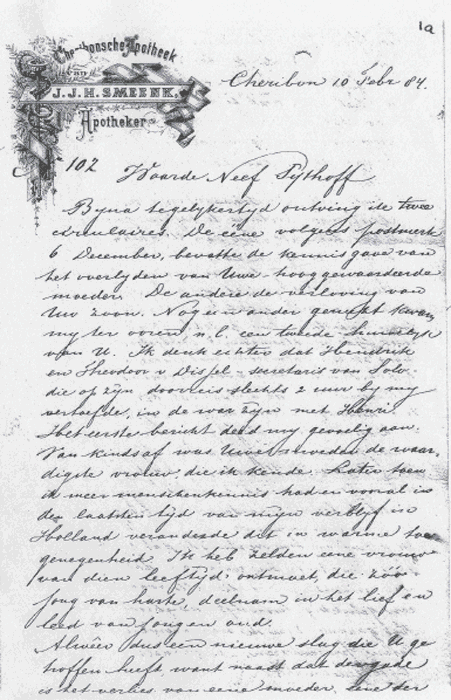 1a
Cheribonsche Apotheek
VAN
J.J.H. SMEENK.
Apotheker
Cheribon 10 Febr 84.
102
Waarde Neef Sythoff
Byna tegelykertyd ontving ik twee
circulaires. De eene volgens postmerk
6 December, bevatte de kennisgave van
het overlyden van Uwe hooggewaardeerde
moeder. De andere de verloving van
Uw zoon. Nog een ander gerucht kwam
my ter ooren, n.l. een tweede huwelyk
van U. Ik denk echter dat Hendrik
en Theodoor v Dissel - secretaris van Solo
die op zyn doorreis slechts 2 uur by my
vertoefde, in de war zyn met Henri.
Het eerste bericht deed my gevoelig aan.
Van kindsaf was Uwe moeder de waar-
digste vrouw, die ik kende. Later toen
ik meer menschenkennis had en vooral in
den laatsten tyd van myn verblyf in
Holland veranderde dit in warme toe
genegenheid. Ik heb zelden eene vrouw
van dien leeftyd ontmoet, die zóó
jong van harte, deelnam in het lief en
leed van jong en oud.
Alweer dus een nieuwe slag die U ge
troffen heeft want naast dat
is het verlies van eene moeder, een der